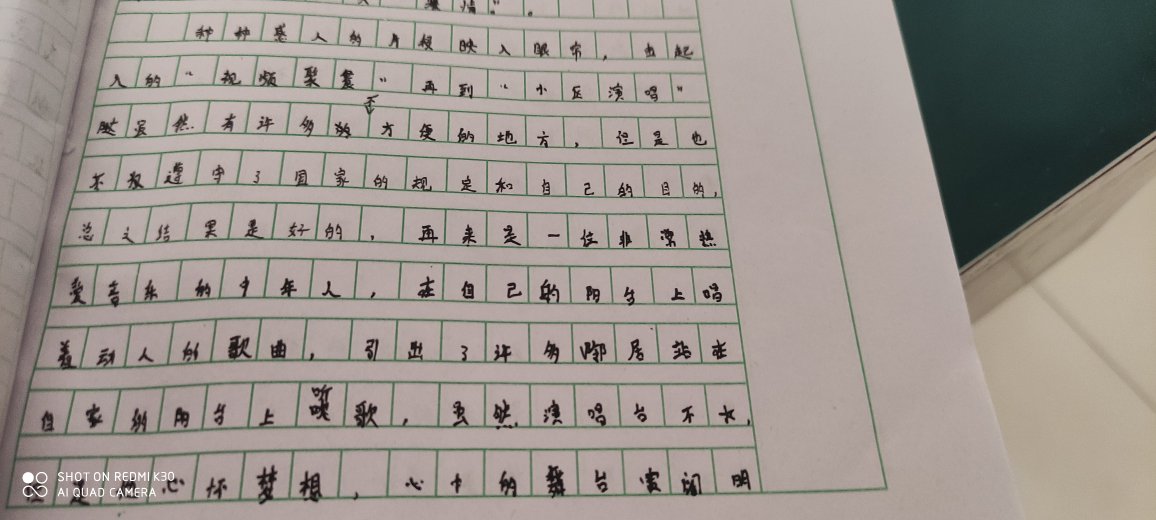 种种感人的片段映入眼帘，由起
人的“视频聚餐”再到“小区演唱”
虽然有许多不方便的地方，但是也
不仅遵守了国家的规定和自己的目的，
总之结果是好的，再来是一位非常热
爱音乐的中年人，在自己的阳台上唱
着动人的歌曲，引出了许多邻居站在
自家的阳台上听歌，虽然演唱台不大，
心怀梦想，心中的舞台宽阔明
SHOT ON REDMI K30
AI QUAD CAMERA